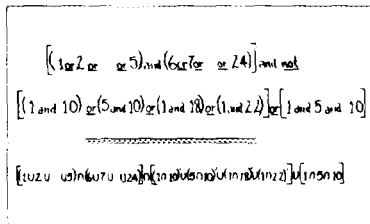 [(1 or 2 or or 5) and (6 or 7 or or 24)] and not
[(1 and 10) or (5 and 10) or (1 and 18) or (1 and 22)] or [1 and 5 and 10]
[(1∪2∪ ∪5)∩(6∪7∪ ∪24)]∩[(1∩10)∪(5∩10)∪(1∩18)∪(1∩22)]∪[1∩5∩10]